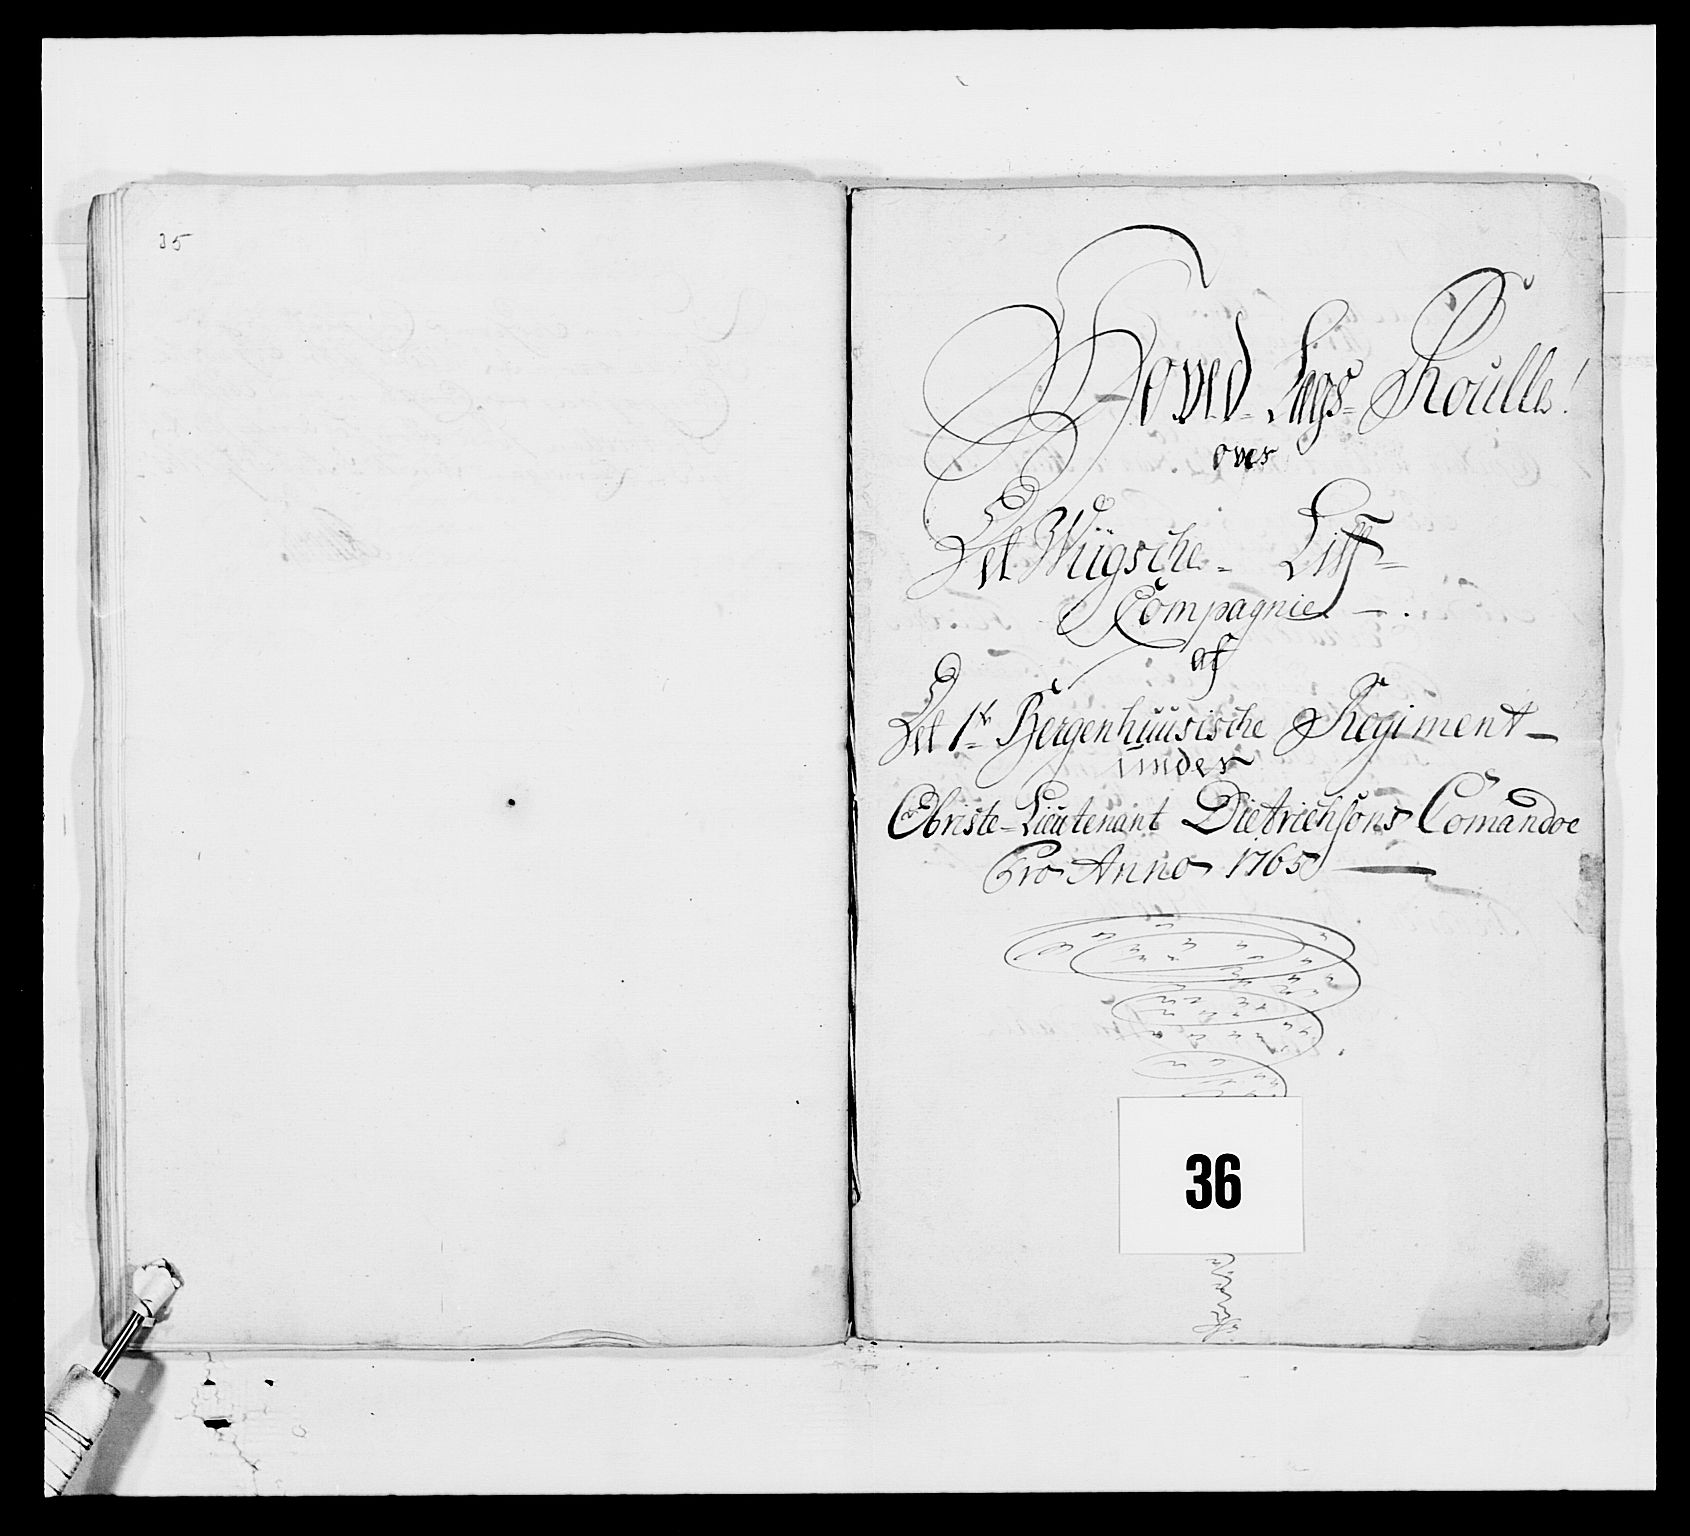 35
Hoved- Lægs- Roulle!
over
Det Wiigsche- Liff-
Compagnie -.
af
Det 1te Bergenhuusische Regiment-
under
Obriste-Lieutenant Dietrichsons Comandoe
Pro Anno 1765
36